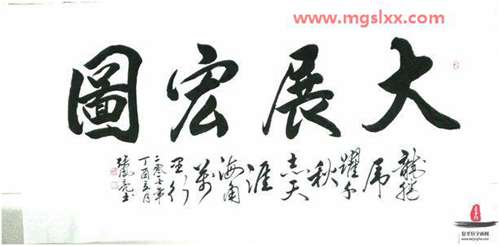 www.mgslxx.com
大展宏圖
龍騰
虎
躍千
秋
志天
涯
海角
萬
里行
二零一七年
丁酉五月